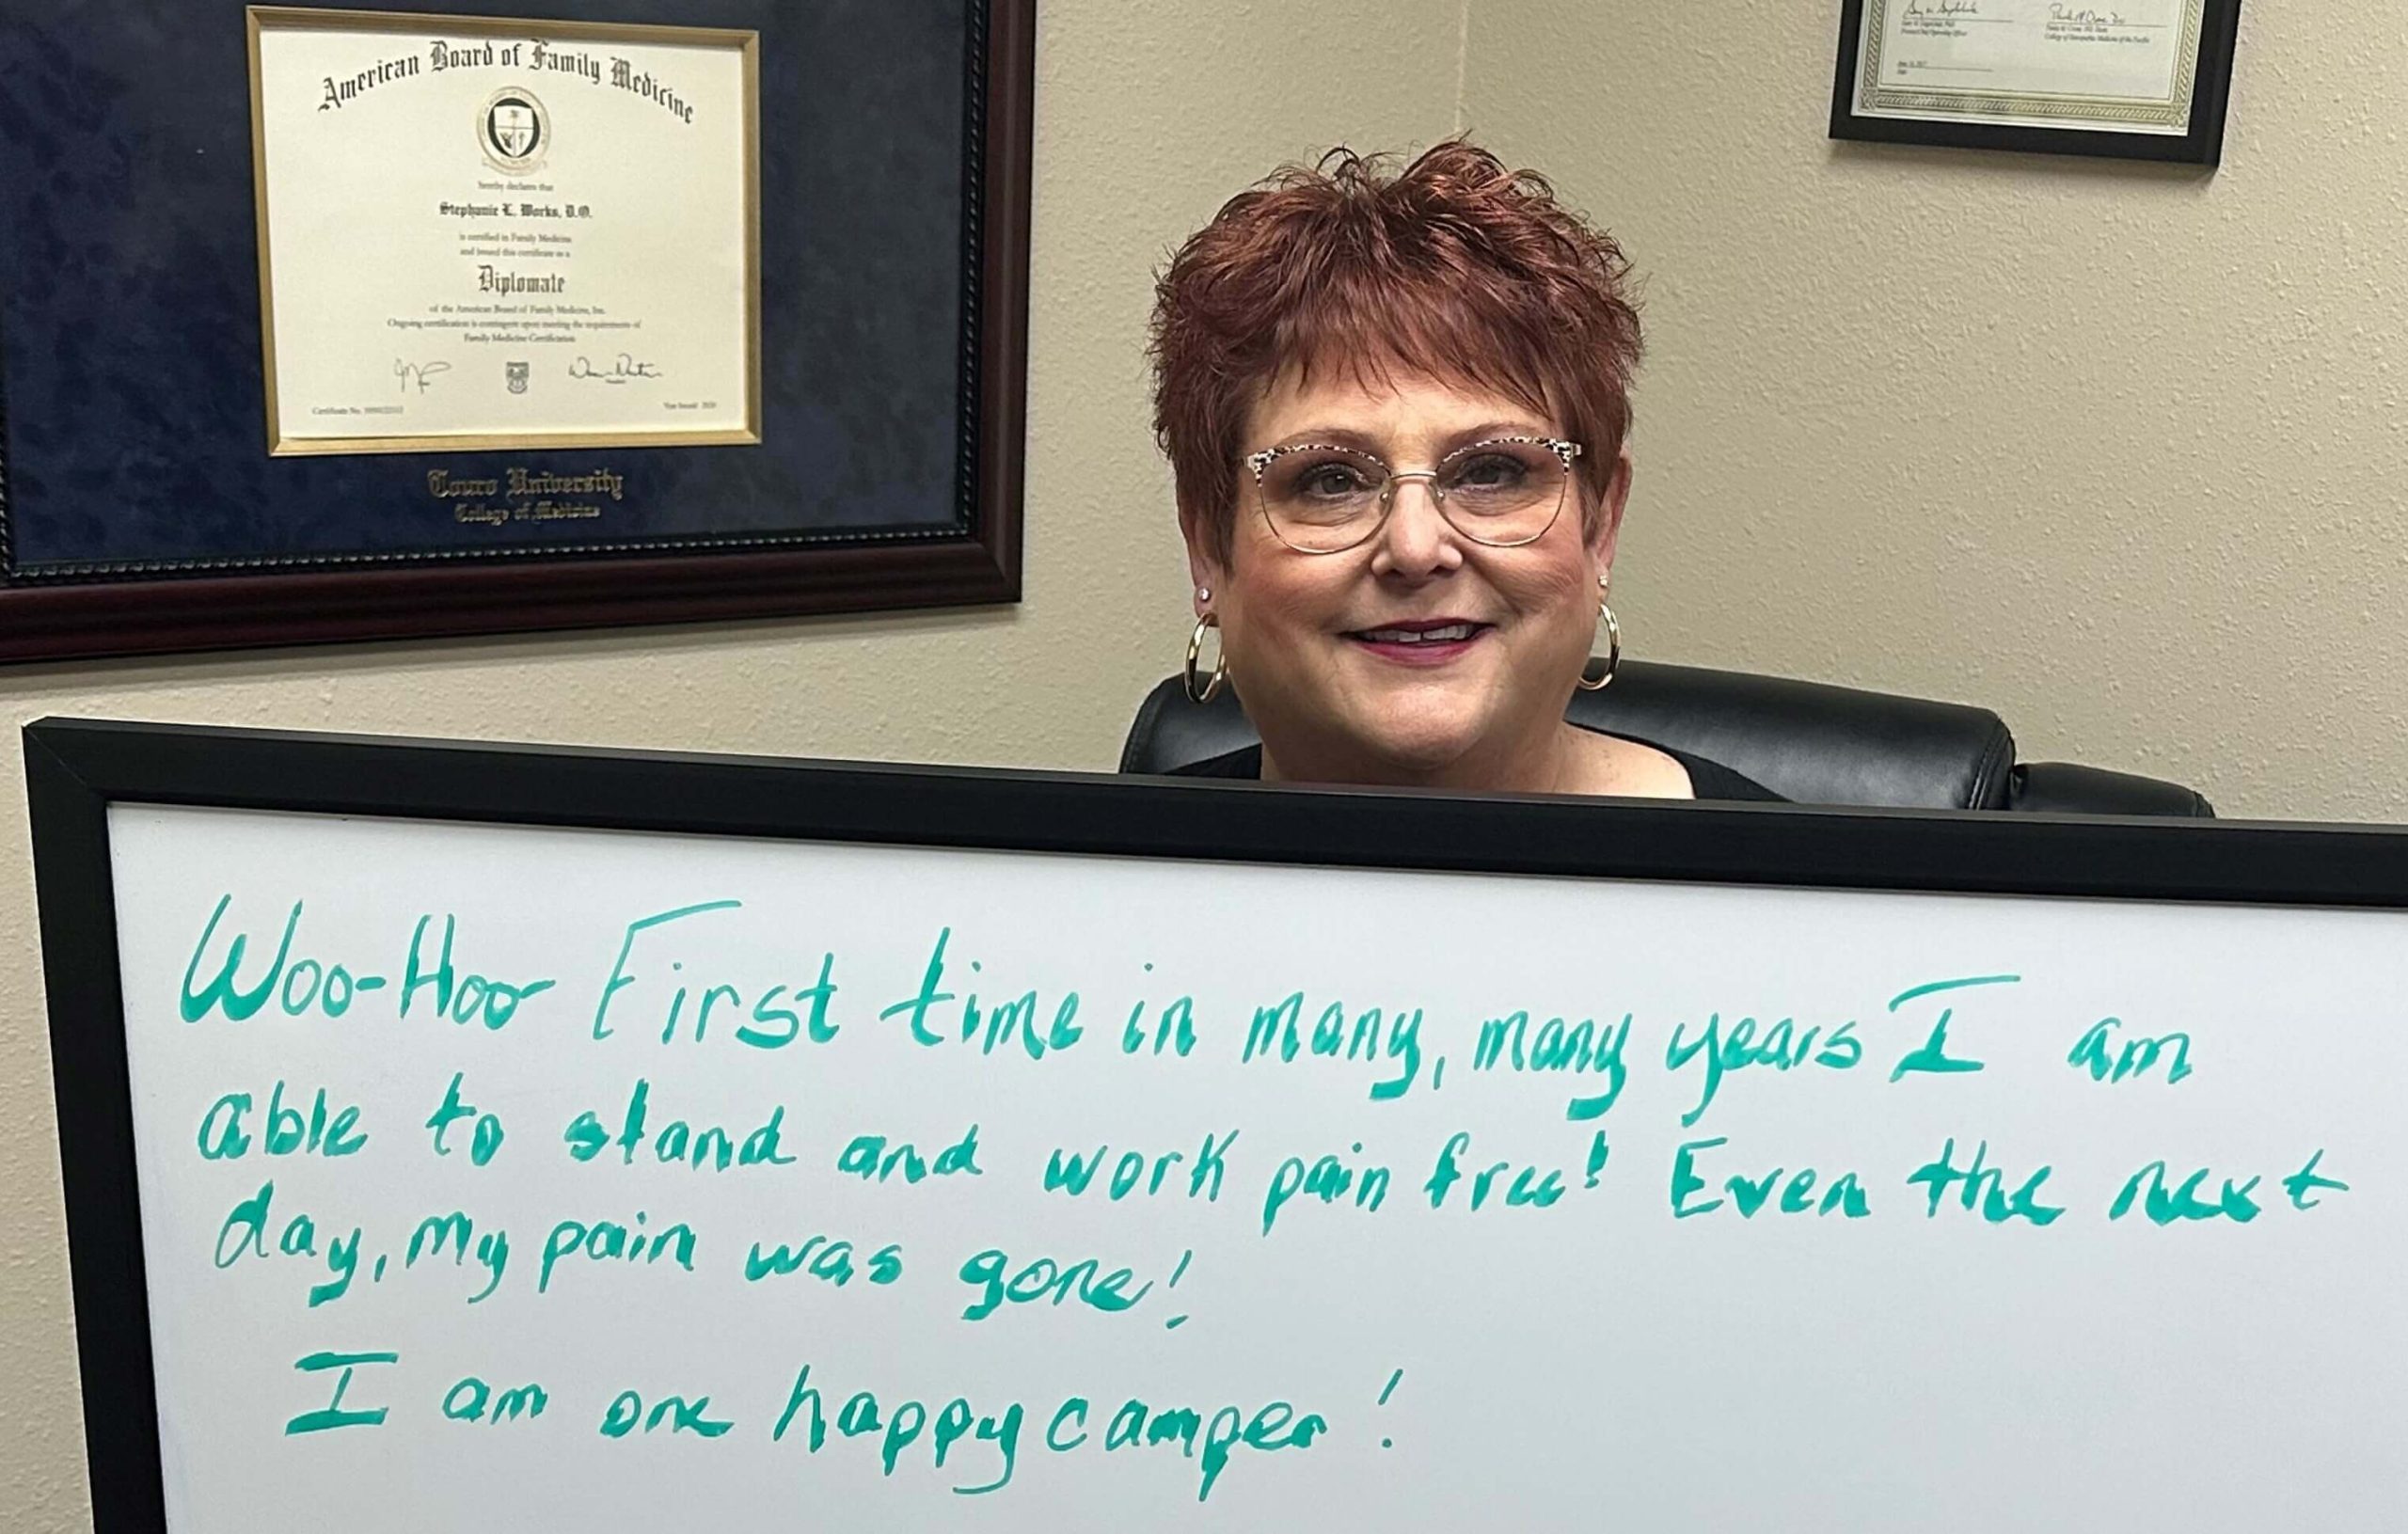 American Board of Family Medicine
hereby declares that
Stephanie L. Works, D.O.
is certified in Family Medicine
and issued this certificate as a
Diplomate
of the American Board of Family Medicine, Inc.
Ongoing certification is contingent upon meeting the requirements of
Family Medicine Certification
President
Certificate No.
Year Issued 2020
Touro University
College of Medicine
College of Osteopathic Medicine of the Pacific
Date
Woo-Hoo First time in many, many years I am
able to stand and work pain free! Even the next
day, my pain was gone!
I am one happy camper!